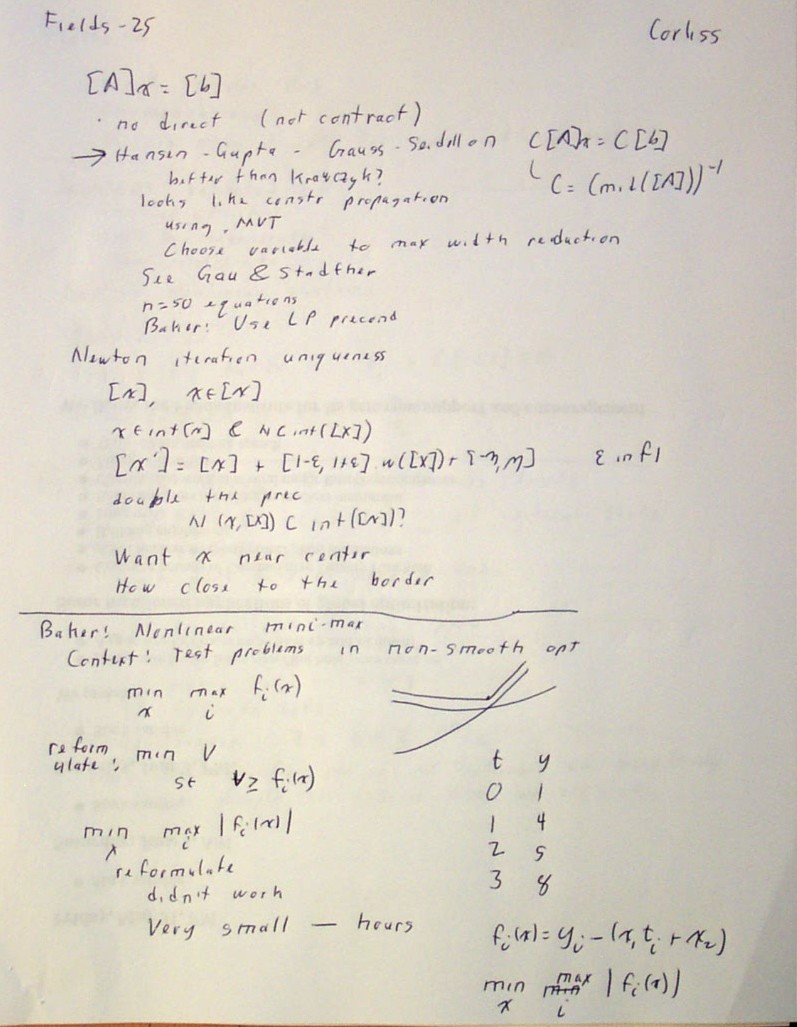 Fields-25
Corliss
[A]x = [b]
· no direct (not contract)
→ Hansen-Gupta - Gauss-Seidel on C[A]x = C[b]
C = (mid([A]))⁻¹
better than Krawczyk?
looks like constr propagation
using MVT
Choose variable to max width reduction
See Gau & Stadtherr
n=50 equations
Baker: Use LP precond
Newton iteration uniqueness
[x], x∈[x]
x ∈ int[x] & N ⊂ int([x])
[x'] = [x] + [1-ε, 1+ε] w([x]) + [-η, η] ε infl
double the prec
N(x,[x]) ⊂ int([x])?
Want x near center
How close to the border
Baker: Nonlinear mini-max
Context: Test problems in non-smooth opt
min max fᵢ(x)
x i
reform
ulate: min V
st V ≥ fᵢ(x)
min max |fᵢ(x)|
x i
reformulate
didn't work
Very small — hours
t y
0 1
1 4
2 5
3 8
fᵢ(x) = yᵢ - (x₁tᵢ + x₂)
min max |fᵢ(x)|
x i